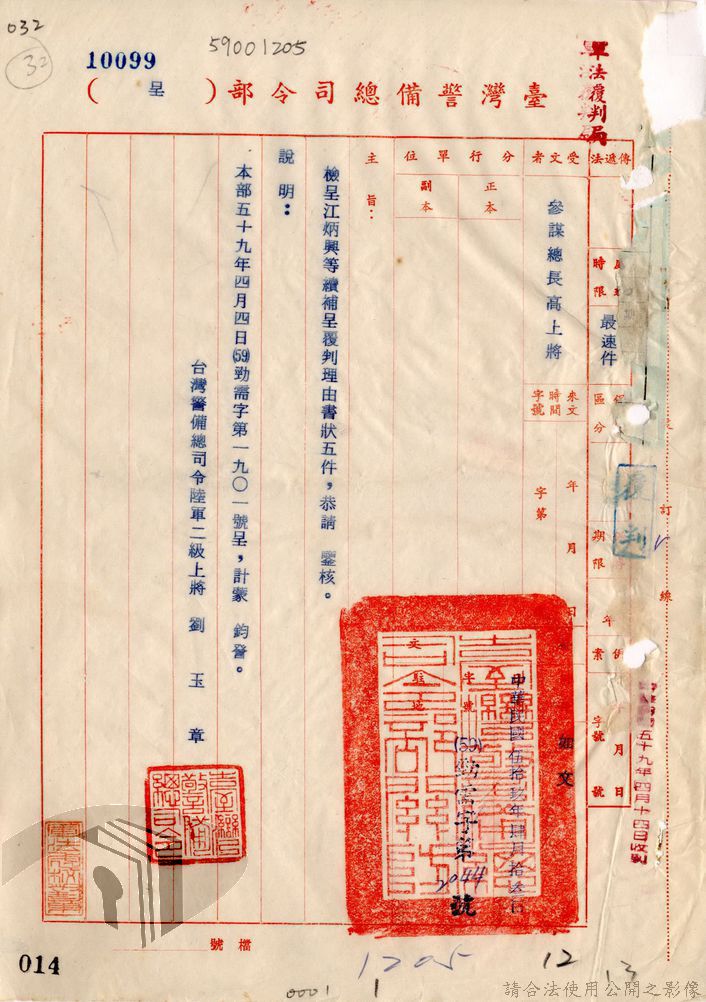 032
32
10099
59001205
軍法覆判局
臺灣警備總司令部（呈）
傳遞法
時限
最速件
受文者
參謀總長高上將
來文
時間
字號
年
月
日
字第
區分
期限
年
月
日
字
號
檔案
訂
線
分行單位
正本
副本
如文
中華民國伍拾玖年肆月拾叁日
發文
字號
(59)勁需字第2044號
五十九年四月十四日收到
主旨：
檢呈江炳興等續補呈覆判理由書狀五件，恭請　鑒核。
說明：
本部五十九年四月四日(59)勁需字第一九〇一號呈，計蒙　鈞詧。
台灣警備總司令陸軍二級上將　劉玉章
檔號
014
1205
12
13
0001
1
請合法使用公開之影像